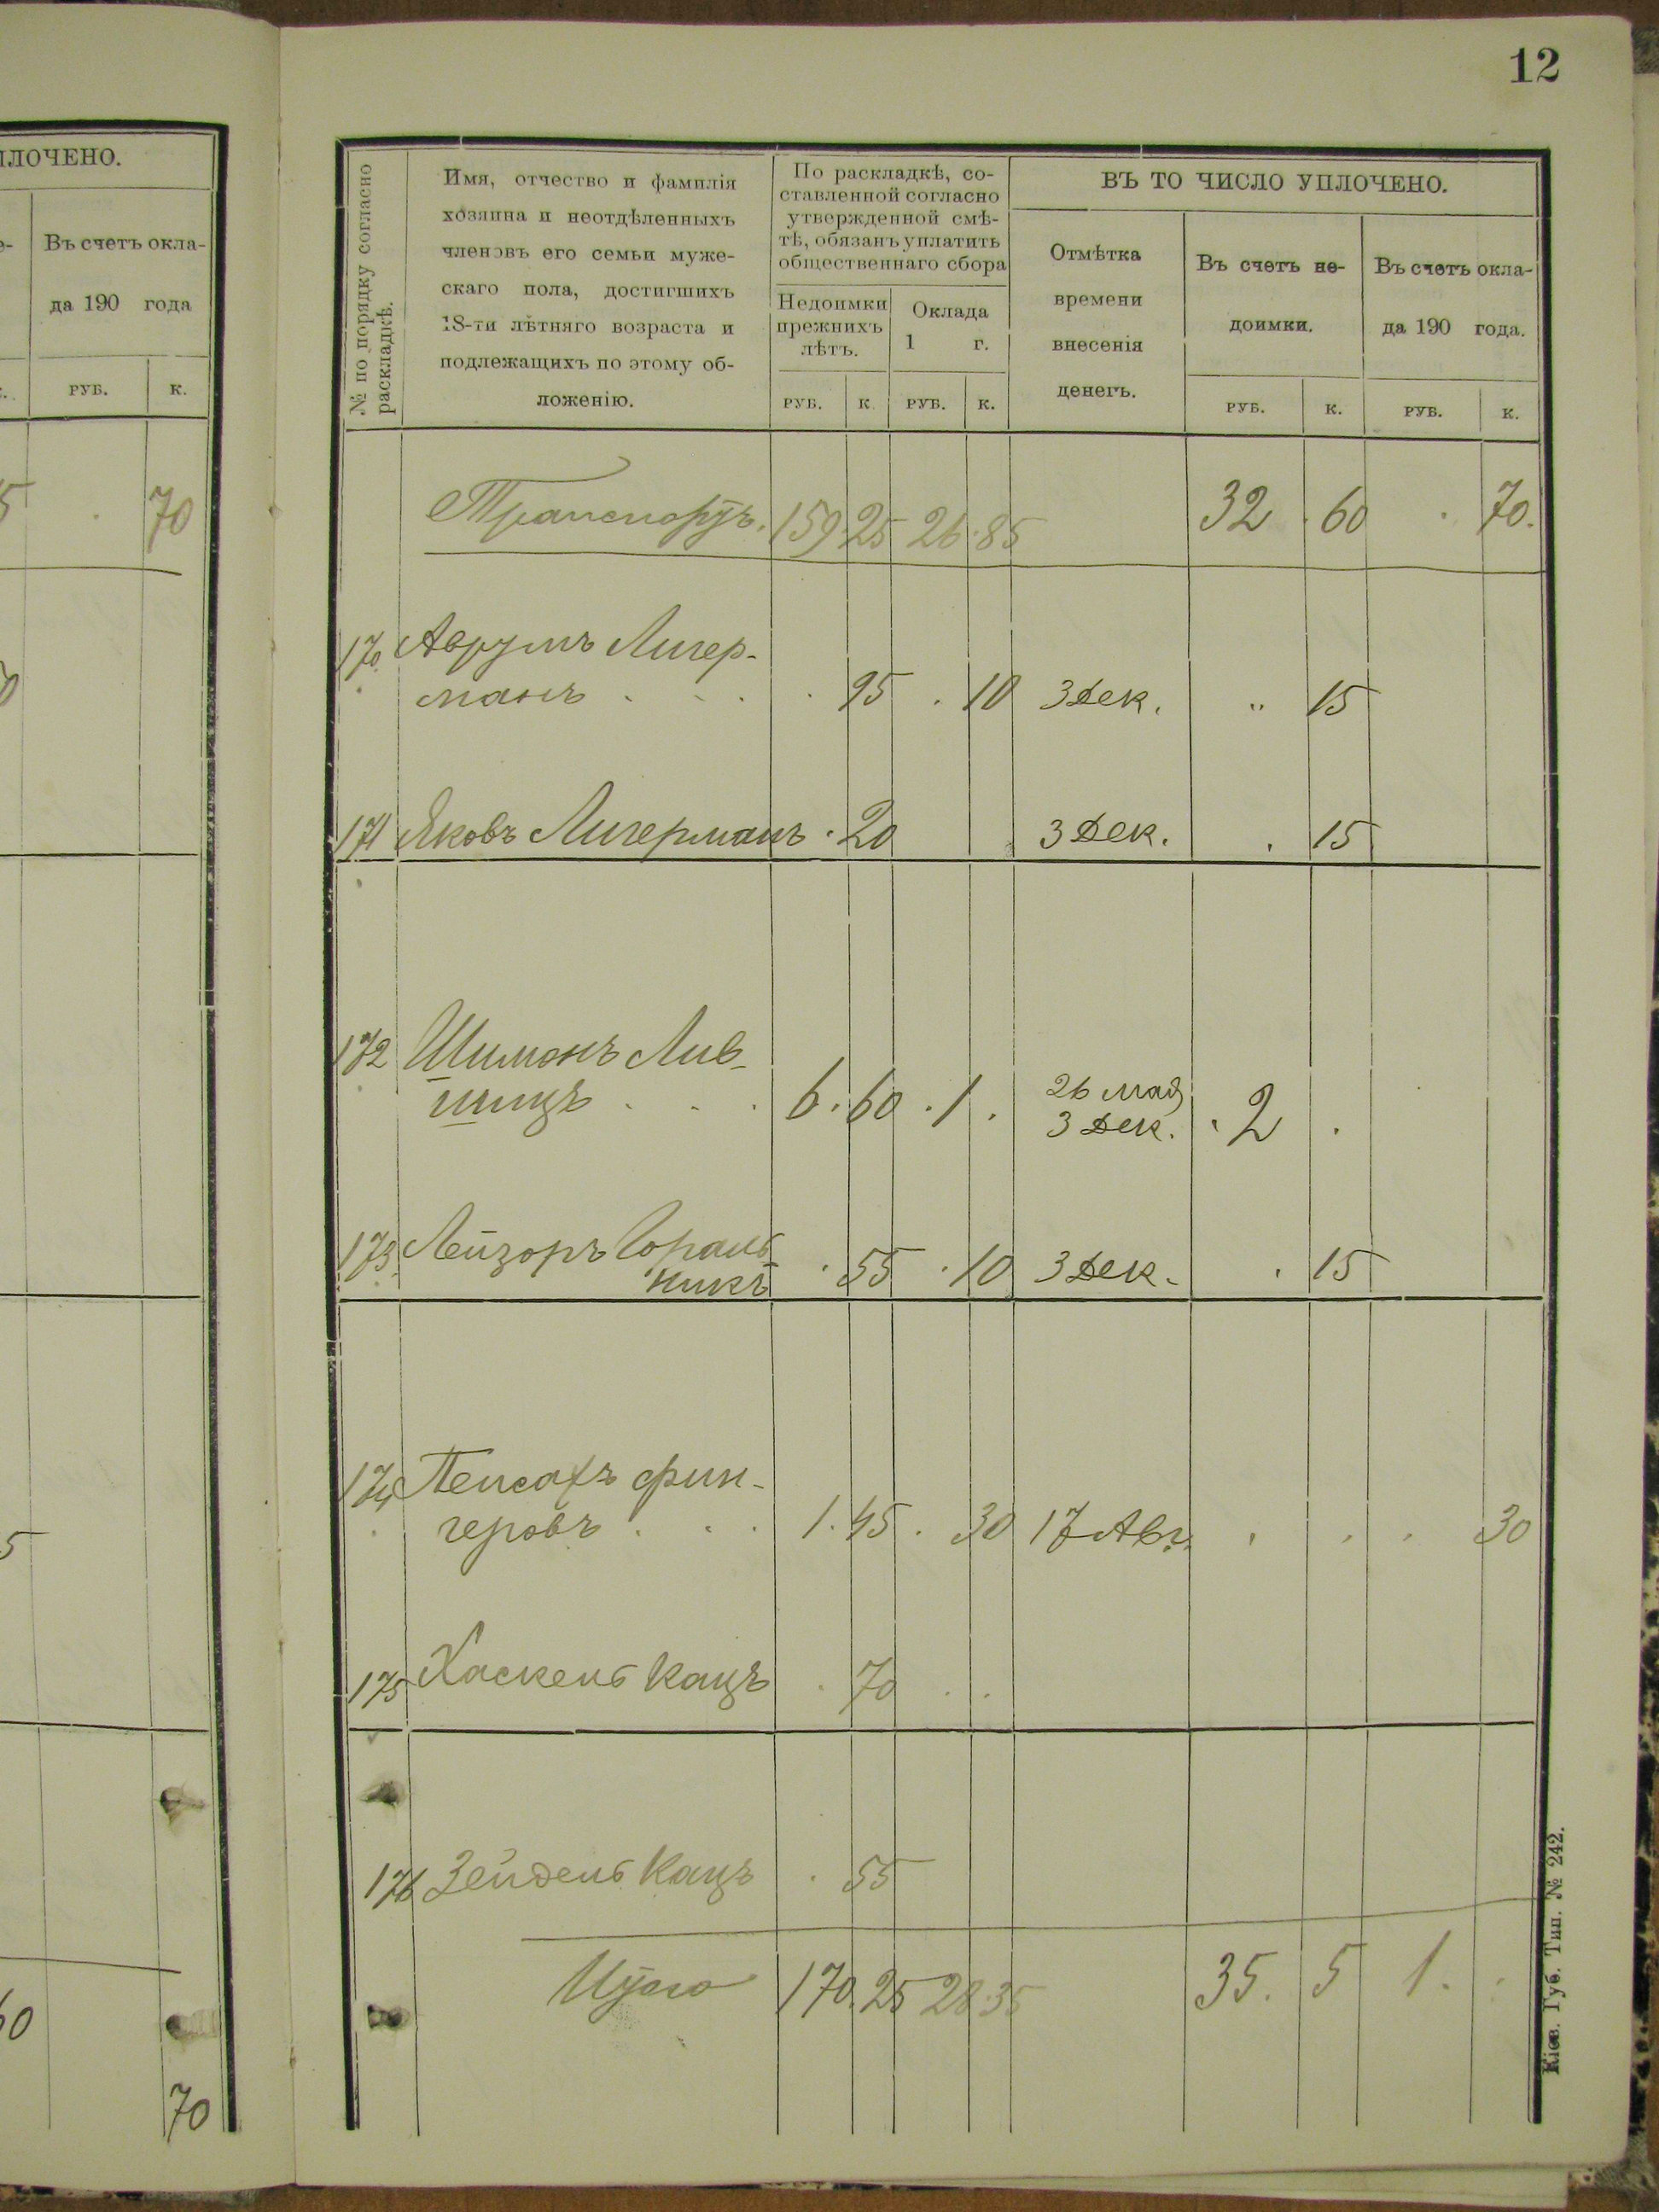 ПЛОЧЕНО.
Въ счетъ окла-
да 190 года
РУБ. К.
5 . 70
5
60
70
12
№ по порядку согласно
раскладкѣ.
Имя, отчество и фамилія
хозяина и неотдѣленныхъ
членовъ его семьи муже-
скаго пола, достигшихъ
18-ти лѣтняго возраста и
подлежащихъ по этому об-
ложенію.
По раскладкѣ, со-
ставленной согласно
утвержденной смѣ-
тѣ, обязанъ уплатить
общественнаго сбора
Недоимки
прежнихъ
лѣтъ.
РУБ. К.
Оклада
1 г.
РУБ. К.
ВЪ ТО ЧИСЛО УПЛОЧЕНО.
Отмѣтка
времени
внесенія
денегъ.
Въ счетъ не-
доимки.
РУБ. К.
Въ счетъ окла-
да 190 года.
РУБ. К.
Транспортъ. 159 25 26 85 32 60 . 70.
170 Аврумъ Лигер-
манъ . . . . 95 . 10 3 Дек. " 15
171 Яковъ Лигерманъ . 20 3 Дек. . 15
172 Шимонъ Лив-
шицъ . . . 6. 60 . 1 . 26 мая
3 Дек. . 2 .
173 Лейзоръ Гораль-
никъ . 55 . 10 3 Дек. . 15
174 Пейсахъ Фин-
геровъ . . . 1. 45 . 30 17 Авг. . . . 30
175 Хаскель Кацъ . 70 . .
176 Зейдель Кацъ . 55
Итого 170. 25 28 35 35. 5 1. .
Кіев. Губ. Тип. № 242.